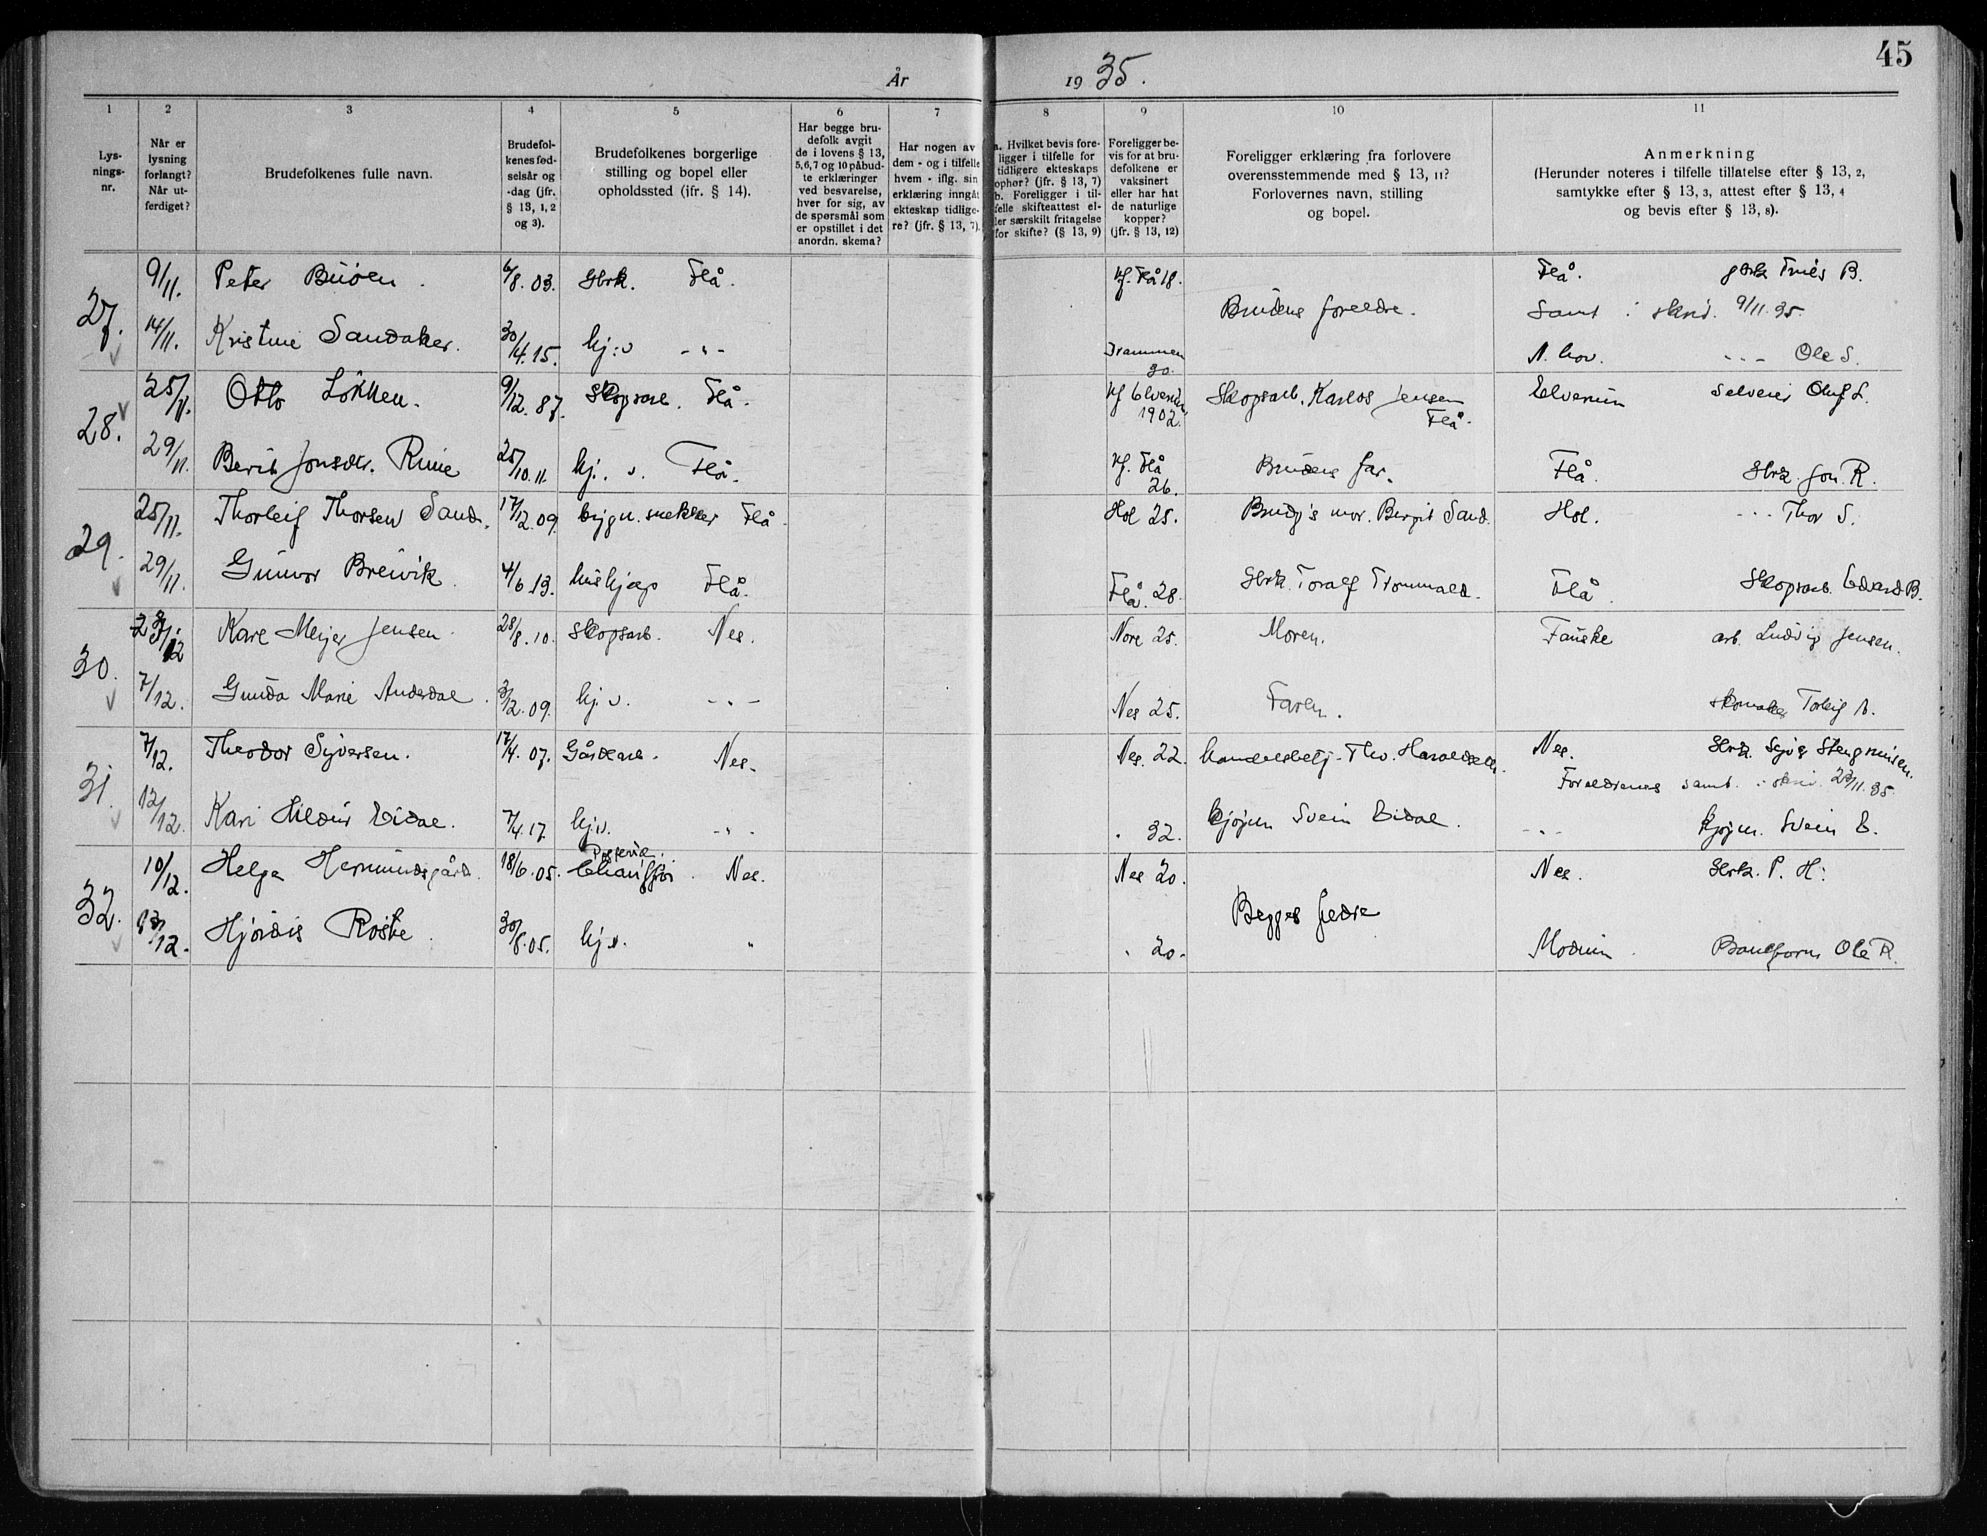 År 1935. 45
1 2 3 4 5 6 7 8 9 10 11
Lys-
nings-
nr.
Når er
lysning
forlangt?
Når ut-
ferdiget?
Brudefolkenes fulle navn.
Brudefol-
kenes fød-
selsår og
-dag (jfr.
§ 13, 1, 2
og 3).
Brudefolkenes borgerlige
stilling og bopel eller
opholdssted (jfr. § 14).
Har begge bru-
defolk avgit
de i lovens § 13,
5,6,7 og 10 påbud-
te erklæringer
ved besvarelse,
hver for sig, av
de spørsmål som
er opstillet i det
anordn. skema?
Har nogen av
dem - og i tilfelle
hvem - iflg. sin
erklæring inngått
ekteskap tidlige-
re? (jfr. § 13, 7).
a. Hvilket bevis fore-
ligger i tilfelle for
tidligere ekteskaps
ophør? (jfr. § 13, 7)
b. Foreligger i til-
felle skifteattest el-
ler særskilt fritagelse
for skifte? (§ 13, 9)
Foreligger be-
vis for at bru-
defolkene er
vaksinert
eller har hat
de naturlige
kopper?
(jfr. § 13, 12)
Foreligger erklæring fra forlovere
overensstemmende med § 13, 11?
Forlovernes navn, stilling
og bopel.
Anmerkning
(Herunder noteres i tilfelle tillatelse efter § 13, 2,
samtykke efter § 13, 3, attest efter § 13, 4
og bevis efter § 13, 8).
27. 9/11. Peter Buøen. 6/8.03. Gbrk. Flå. Kf. Flå 18. Flå. gbrk B.
Brudens foreldre. Samt i skriv. 9/11.35.
14/11. Kristine Sandaker. 30/4.15. hj: v -"- Drammen 30. N. hov. --- Ole S.
28. 25/11. Otto Løkken. 9/12.87. Skogsarb. Flå. Kf Elverum 1902. Skogsarb. Karlos Jensen Flå. Elverum Oluf L.
29/11. Berit Jonsdtr. Rime 25/10.11. hj. v. Flå. Kf. Flå 26. Brudens far. Flå. Gbrk Jon R.
29. 25/11. Thorleif Thorsen Sand. 17/12.09. bygn. snekker Flå. Hol 25. Brudg's mor. Bergit Sand. Hol. --- Thor S.
29/11. Gunvor Breivik 4/6.13. hushjelp Flå. Flå. 28. Gbrk. Toralf Trommald. Flå. Skogsarb. Edvard B.
30. /12 Kåre Meyer Jensen. 28/8.10. Skogsarb. Nes. Nore 25. Moren. Fauske arb. Ludvig Jensen.
7/12. Gunda Marie Andsdal. 3/12.09. hj. v. -"- Nes 25. Faren. skomaker Torleif A.
31. 7/12. Theodor Syversen. 17/4.07. Gårdarb. Nes. Nes. 22. handelsbetj. Thv. Haraldsen Nes. Gbrk.
Foreldrenes samt. i skriv. /11.35.
12/12. Kari Hildur Eidal. 7/4.17. hj.v. -"- " 32. kjøpm Svein Eidal. -"- kjøpm. Svein E.
32. 10/12. Helge Hermundsgård. 18/6.05. Chauffør. Nes. Nes 20. Nes. Gbrk. P. H.
Begges fedre
/12. Hjørdis Røste. 30/8.05. hj.v. " " 20. Modum. Baneform Ole R.